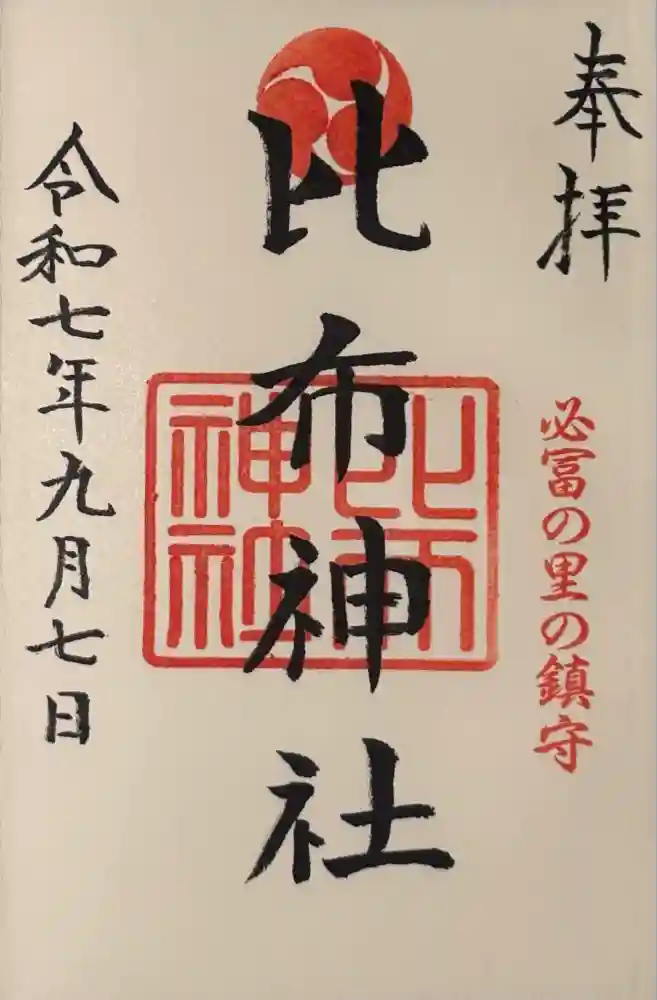 奉拝
必冨の里の鎮守
比布神社
比布神社
令和七年九月七日